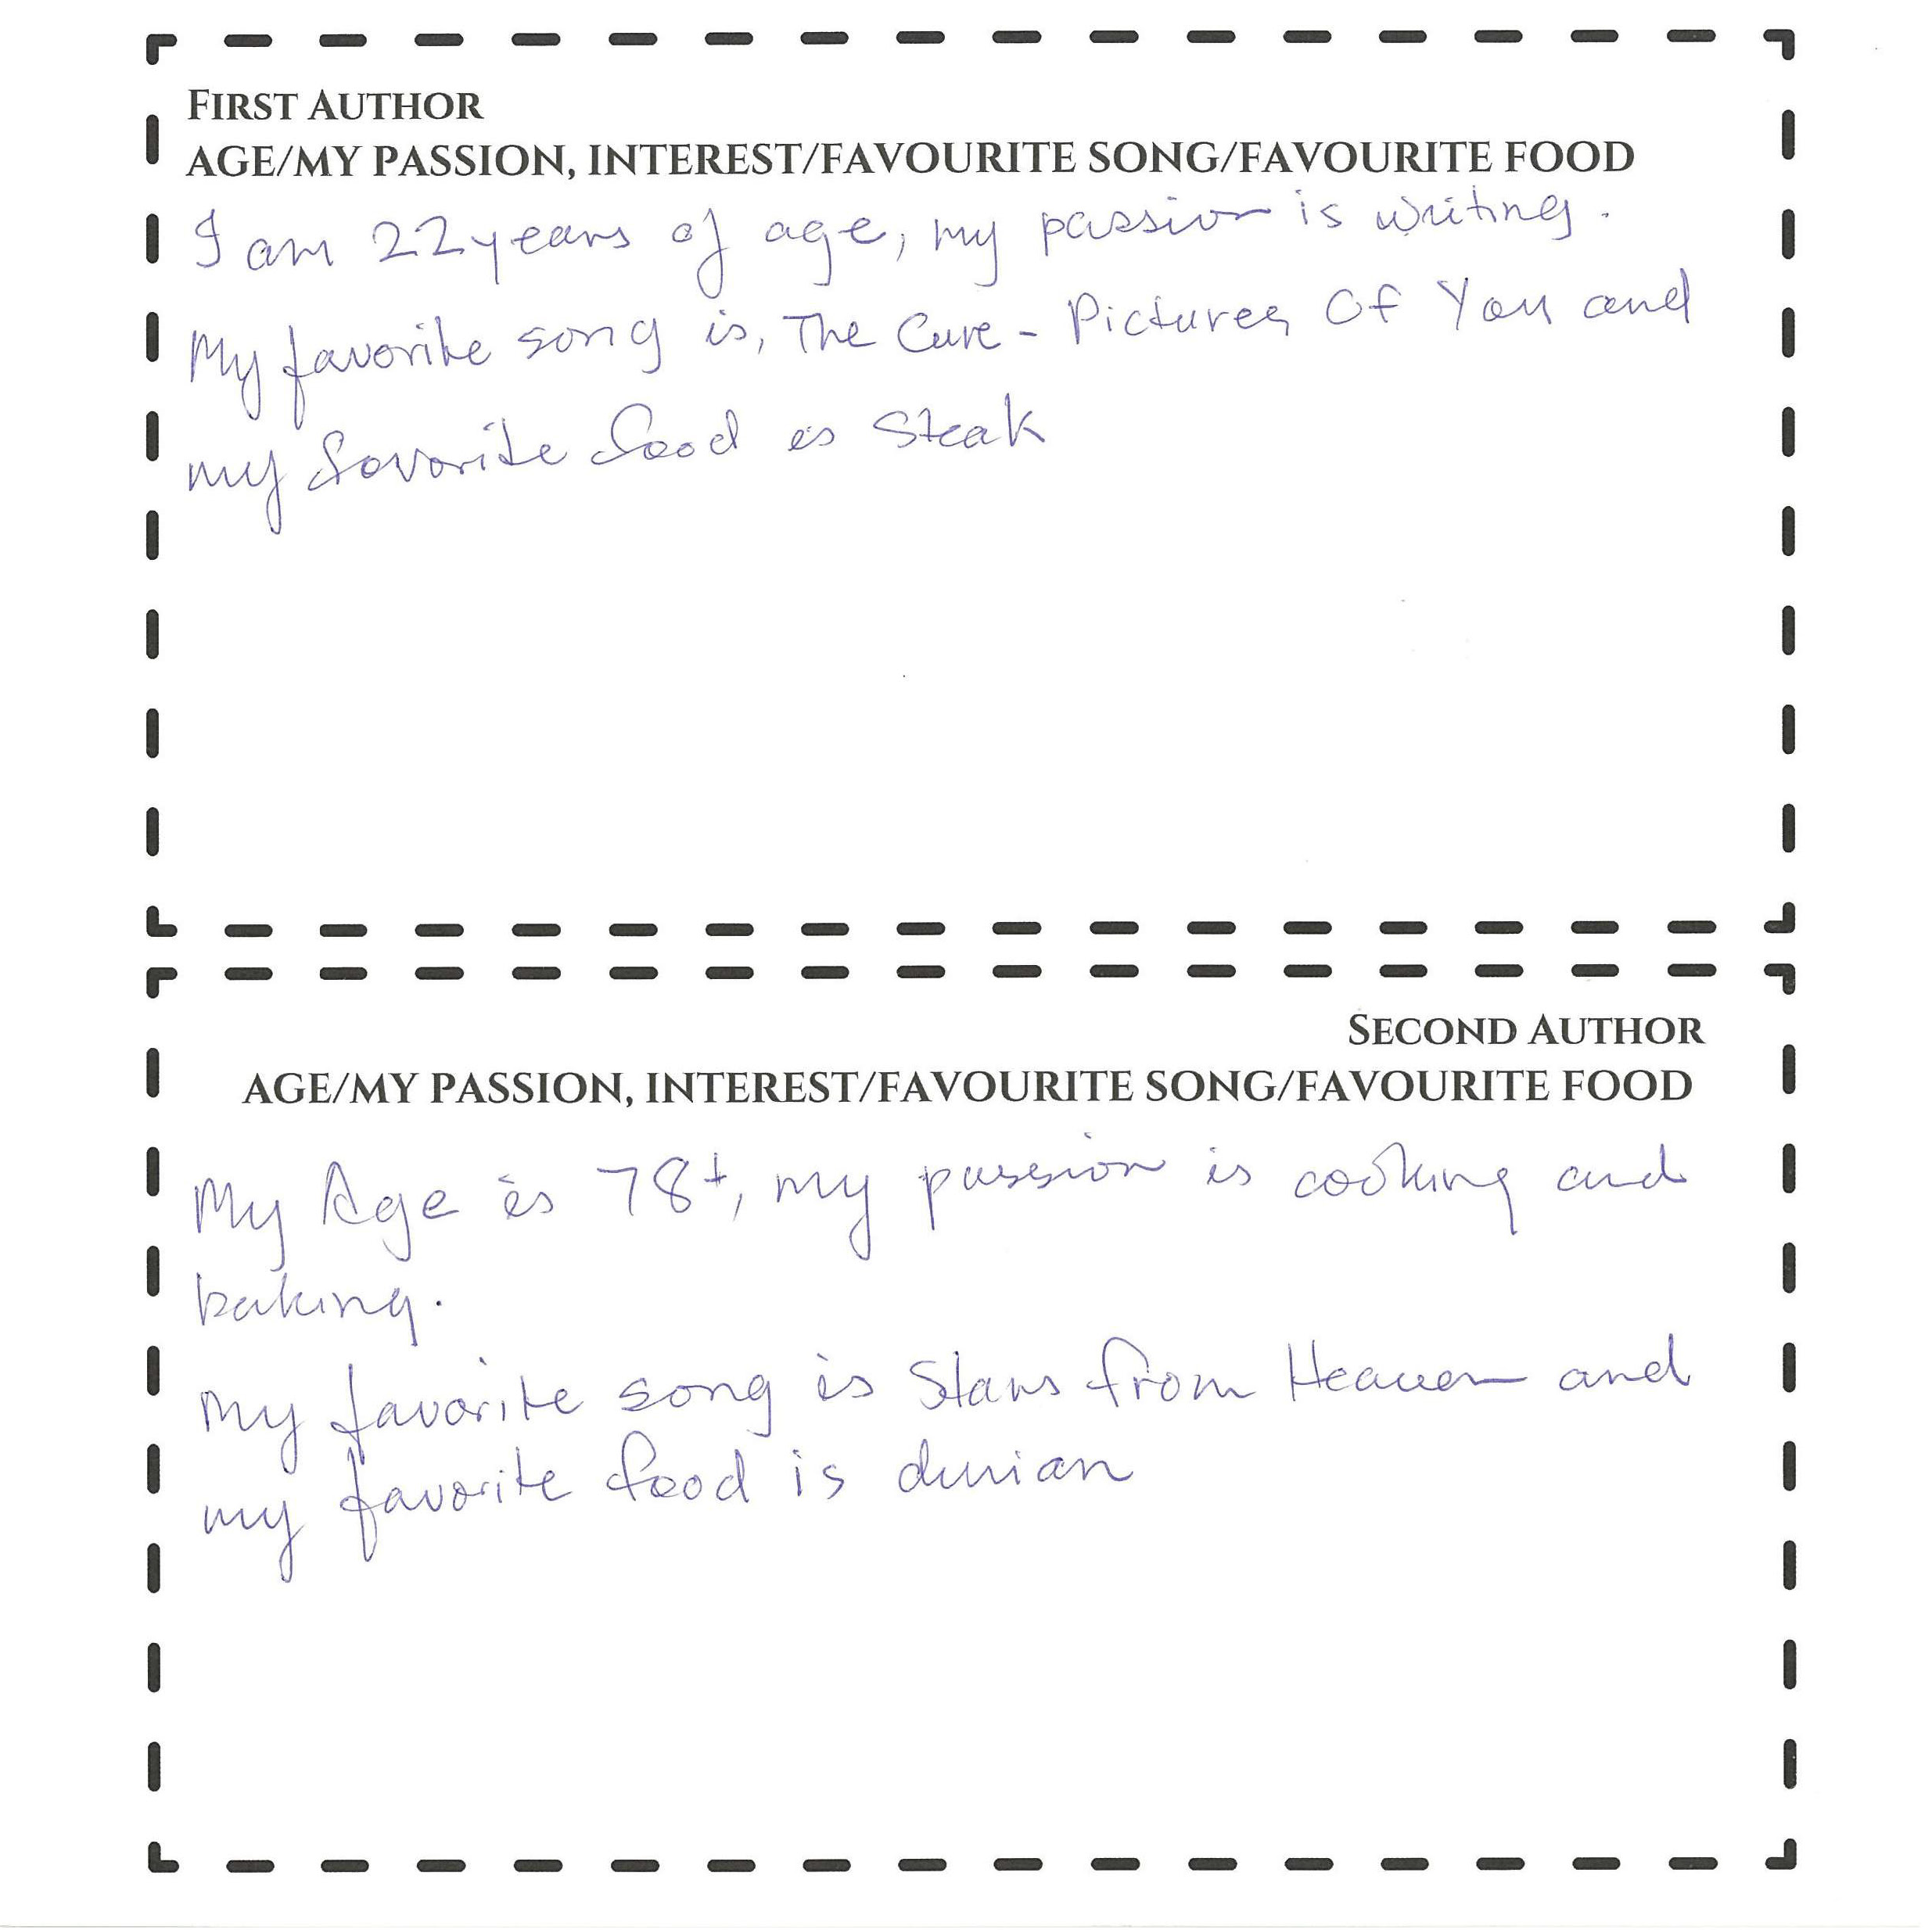 FIRST AUTHOR
AGE/MY PASSION, INTEREST/FAVOURITE SONG/FAVOURITE FOOD
I am 22 years of age, my passion is writing.
My favorite song is, The Cure - Pictures Of You and
my favorite food is Steak
SECOND AUTHOR
AGE/MY PASSION, INTEREST/FAVOURITE SONG/FAVOURITE FOOD
My Age is 78+, my passion is cooking and
baking.
My favorite song is Stars from Heaven and
my favorite food is durian